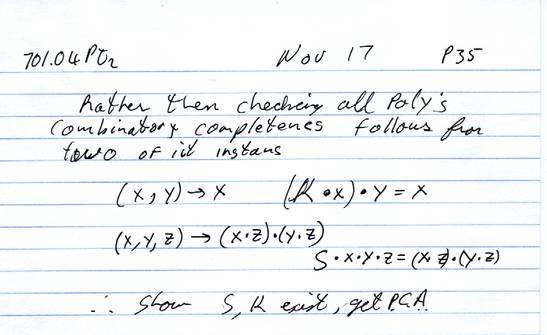 701.04 Pt2 Nov 17 P35
Rather then checking all Poly's
Combinatory completenes follows from
towo of it instans
(x, y) → x (K • x) • y = x
(x, y, z) → (x·z)·(y·z)
S • x • y • z = (x·z)·(y·z)
∴ Show S, K exist, get P.C.A.